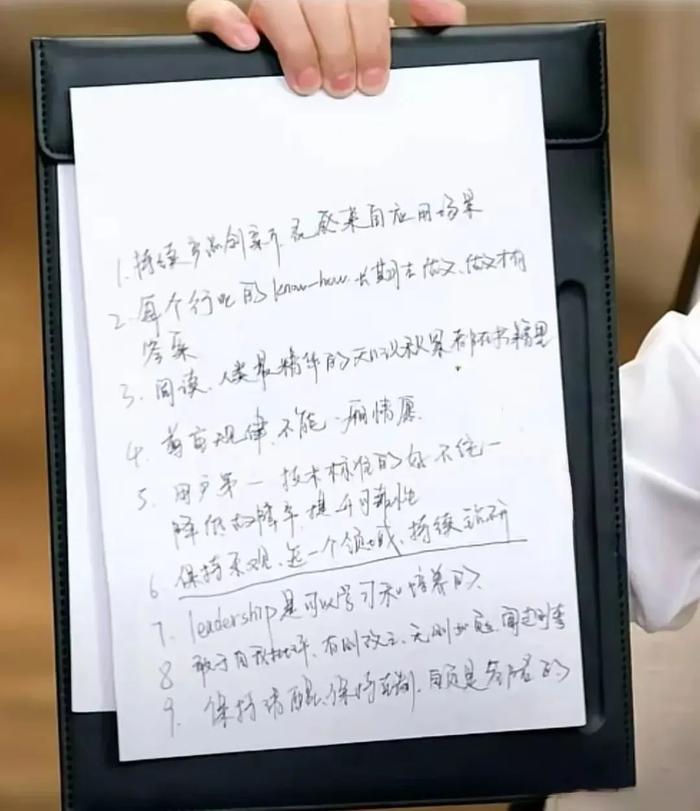 1. 持续产品创新、灵感来自应用场景
2. 每个行业的 know-how. 长期去做又、做又才有
答案
3. 阅读、人类最精华的知识积累都在书籍里
4. 尊重规律、不能一厢情愿.
5. 用户第一 技术标准的好不统一
降低故障率、提升可靠性
6. 保持乐观、选一个领域、持续钻研
7. leadership是可以学习和培养的.
8 敢于自我批评、有则改之、无则加勉、闻过则喜
9. 保持清醒、保持克制、自负是无知的